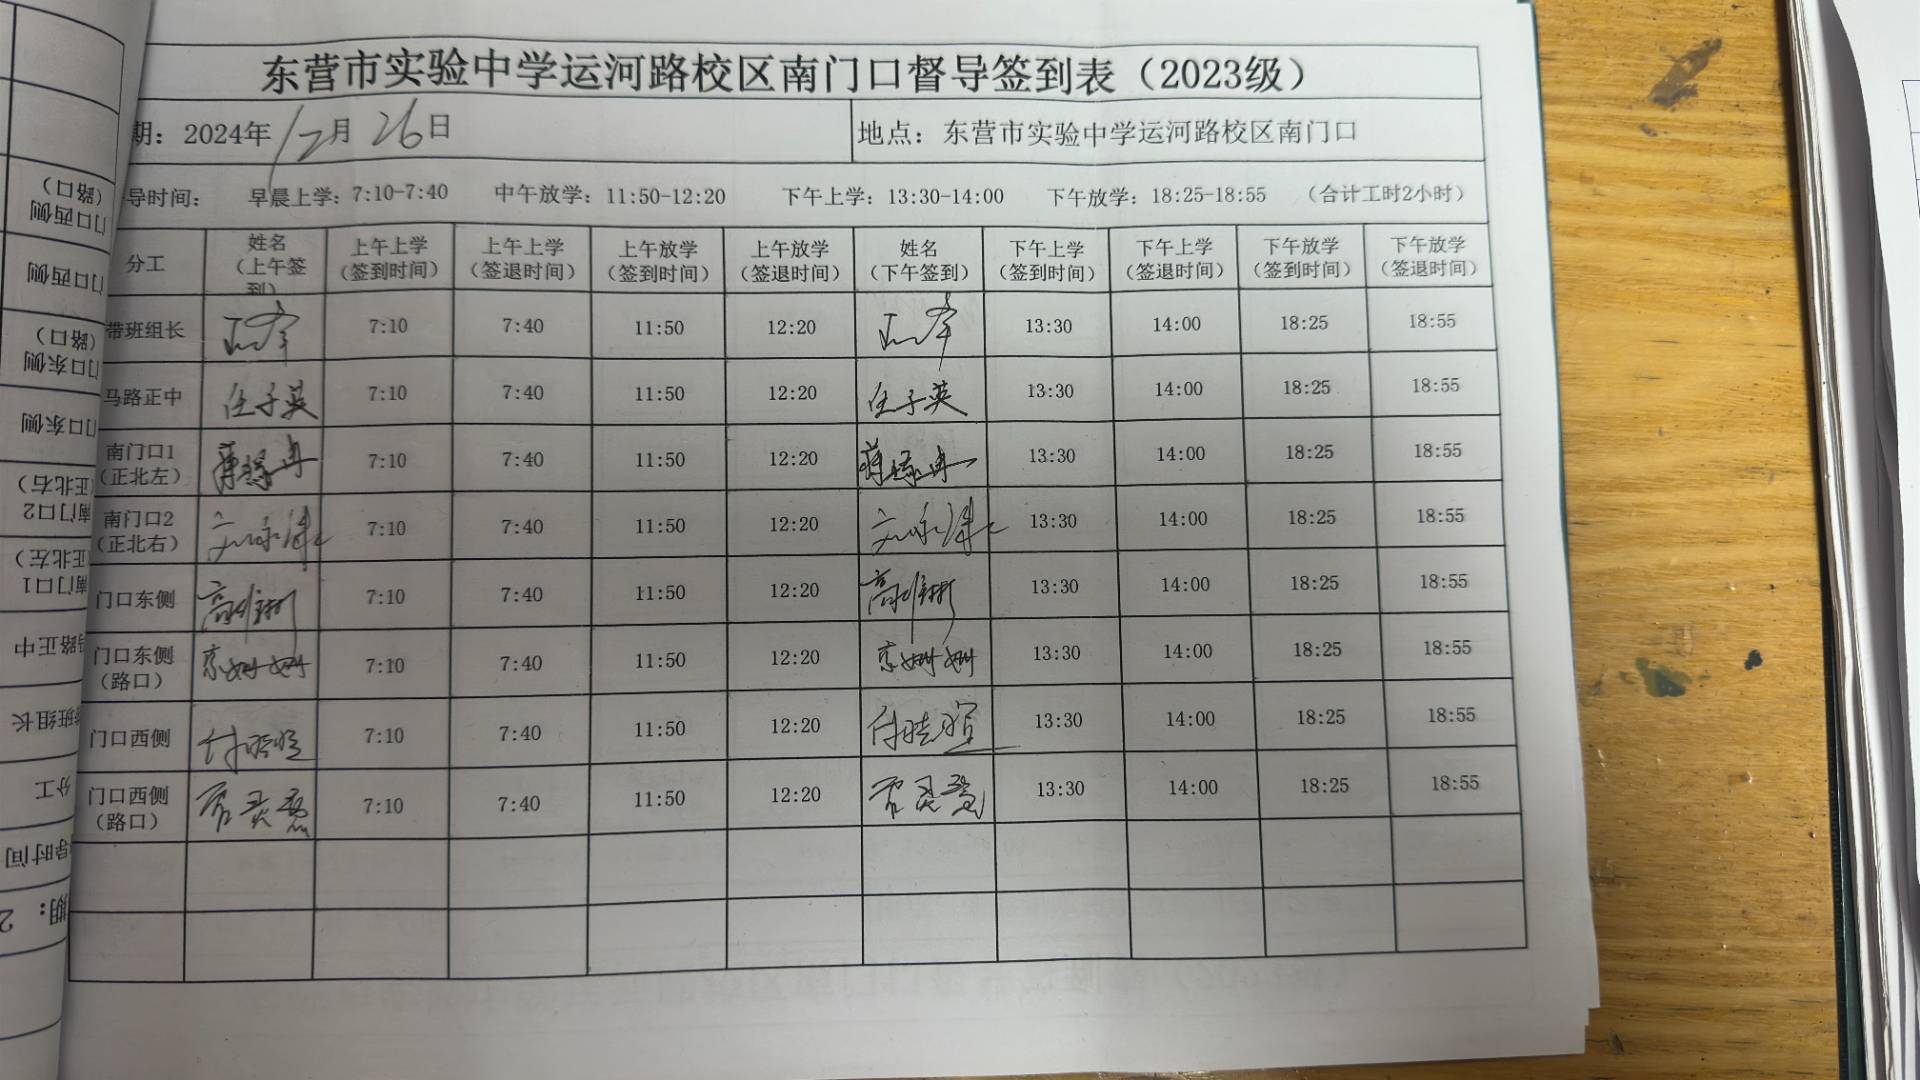 东营市实验中学运河路校区南门口督导签到表（2023级）
期：2024年12月26日 地点：东营市实验中学运河路校区南门口
导时间： 早晨上学：7:10-7:40 中午放学：11:50-12:20 下午上学：13:30-14:00 下午放学：18:25-18:55 （合计工时2小时）
分工 姓名（上午签到） 上午上学（签到时间） 上午上学（签退时间） 上午放学（签到时间） 上午放学（签退时间） 姓名（下午签到） 下午上学（签到时间） 下午上学（签退时间） 下午放学（签到时间） 下午放学（签退时间）
带班组长 7:10 7:40 11:50 12:20 13:30 14:00 18:25 18:55
马路正中 任子英 7:10 7:40 11:50 12:20 任子英 13:30 14:00 18:25 18:55
南门口1（正北左） 7:10 7:40 11:50 12:20 13:30 14:00 18:25 18:55
南门口2（正北右） 7:10 7:40 11:50 12:20 13:30 14:00 18:25 18:55
门口东侧 7:10 7:40 11:50 12:20 13:30 14:00 18:25 18:55
门口东侧（路口） 7:10 7:40 11:50 12:20 13:30 14:00 18:25 18:55
门口西侧 7:10 7:40 11:50 12:20 13:30 14:00 18:25 18:55
门口西侧（路口） 7:10 7:40 11:50 12:20 13:30 14:00 18:25 18:55